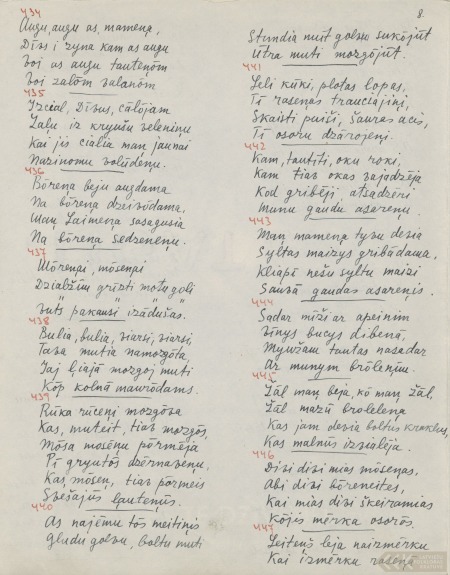 434
Augu, augu as, mameņa,
Dīvs i zyna kam as augu
Voi as augu tauteņom
Voi zalòm valanòm
435
Izcial, Dīvus, cālòjam
Zalu iz kryušu veleniņu
Kai jis cialia maņ jaunai
Nazinomu volūdeņu.
436
Bòreņa beju augdama
Na bòreņa dzeivòdama,
Maņ Laimeņa sasagusia
Na bòreņa sedzeneņu.
437
Mòreņai, mòseņai
Dzialžim grīzti motu goli
Vuts pakausi izādušas.
438
Bulia, bulia, viarsi, viarsi
Tava mutia namozgòta,
Jaj ļiajā mozgoj muti
Kòp kolnā maurūdams.
439
Rūka rūceņi mozgòva
Kas, muteit, tiav mozgòs,
Mòsa mosèņu pòrmeja
Pī gryutòs dzērnaveņu,
Kas, mòseņ, tiav pòrmeis
Svešajūs ļauteņūs.
440
As najēmu tòs meitiņis
Gludu golvu, boltu muti
8
Stundia nuit golvu sukòjūt
Utra muti mozgòjūt.
441
Leli kūki, plotas lopas,
Tī raseņas trauciajiņi,
Skaisti puiši, šauras acis,
Tī osoru dzārojeņi.
442
Kam, tautīti, oku roki,
Kam tiav okas vajadzēja
Kod gribēji atsadzēri
Munu gaudu asareņu.
443
Maņ mameņa tyvu devia
Syltas maizys gribādama,
Kliapī nešu syltu maizi
Sauvā gaudas asarenis.
444
Sādar mīži ar apeinim
Vīnys bucys dibenā,
Myužam tautas nasadar
Ar munym bròleņim.
445
Žāl maņ beja, kò maņ žāl,
Žāl mazū broleleņa
Kas jam devia boltus kraklus,
Kas malnūs izvialēja.
446
Divi divi mias mòseņas,
Abi divi bòreneites,
Kai mias divi škeiramias
Kòjis mērka osoròs.
447
Leitenš leja naizmērku
Kai izmērku raseņā